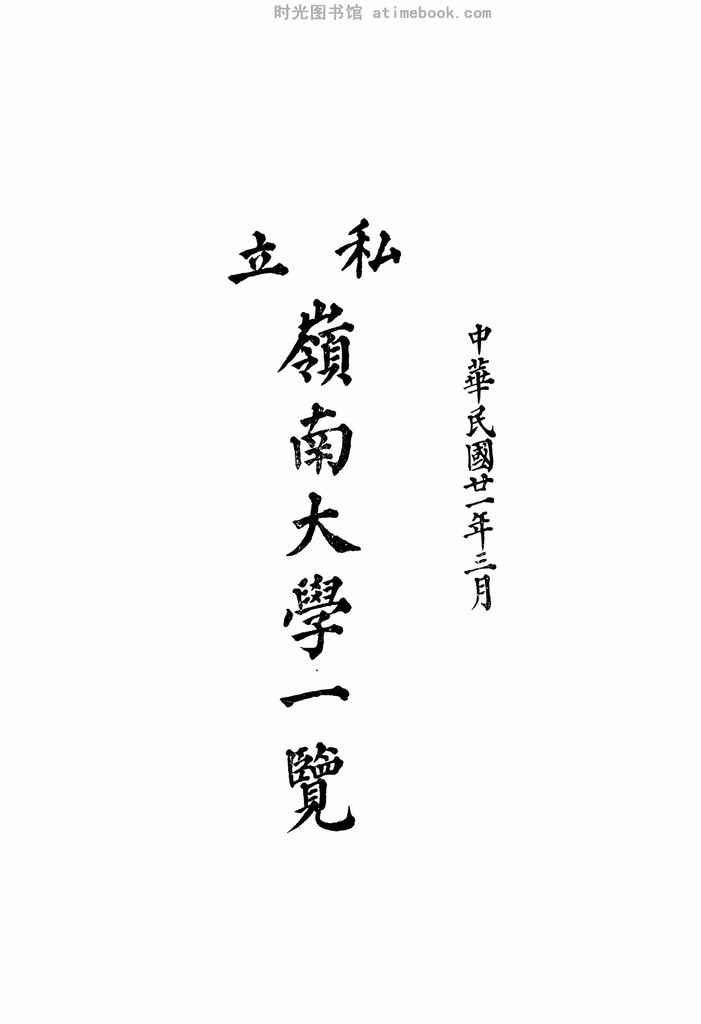 时光图书馆 atimebook.com
中華民國廿一年三月
私立
嶺南大學一覽